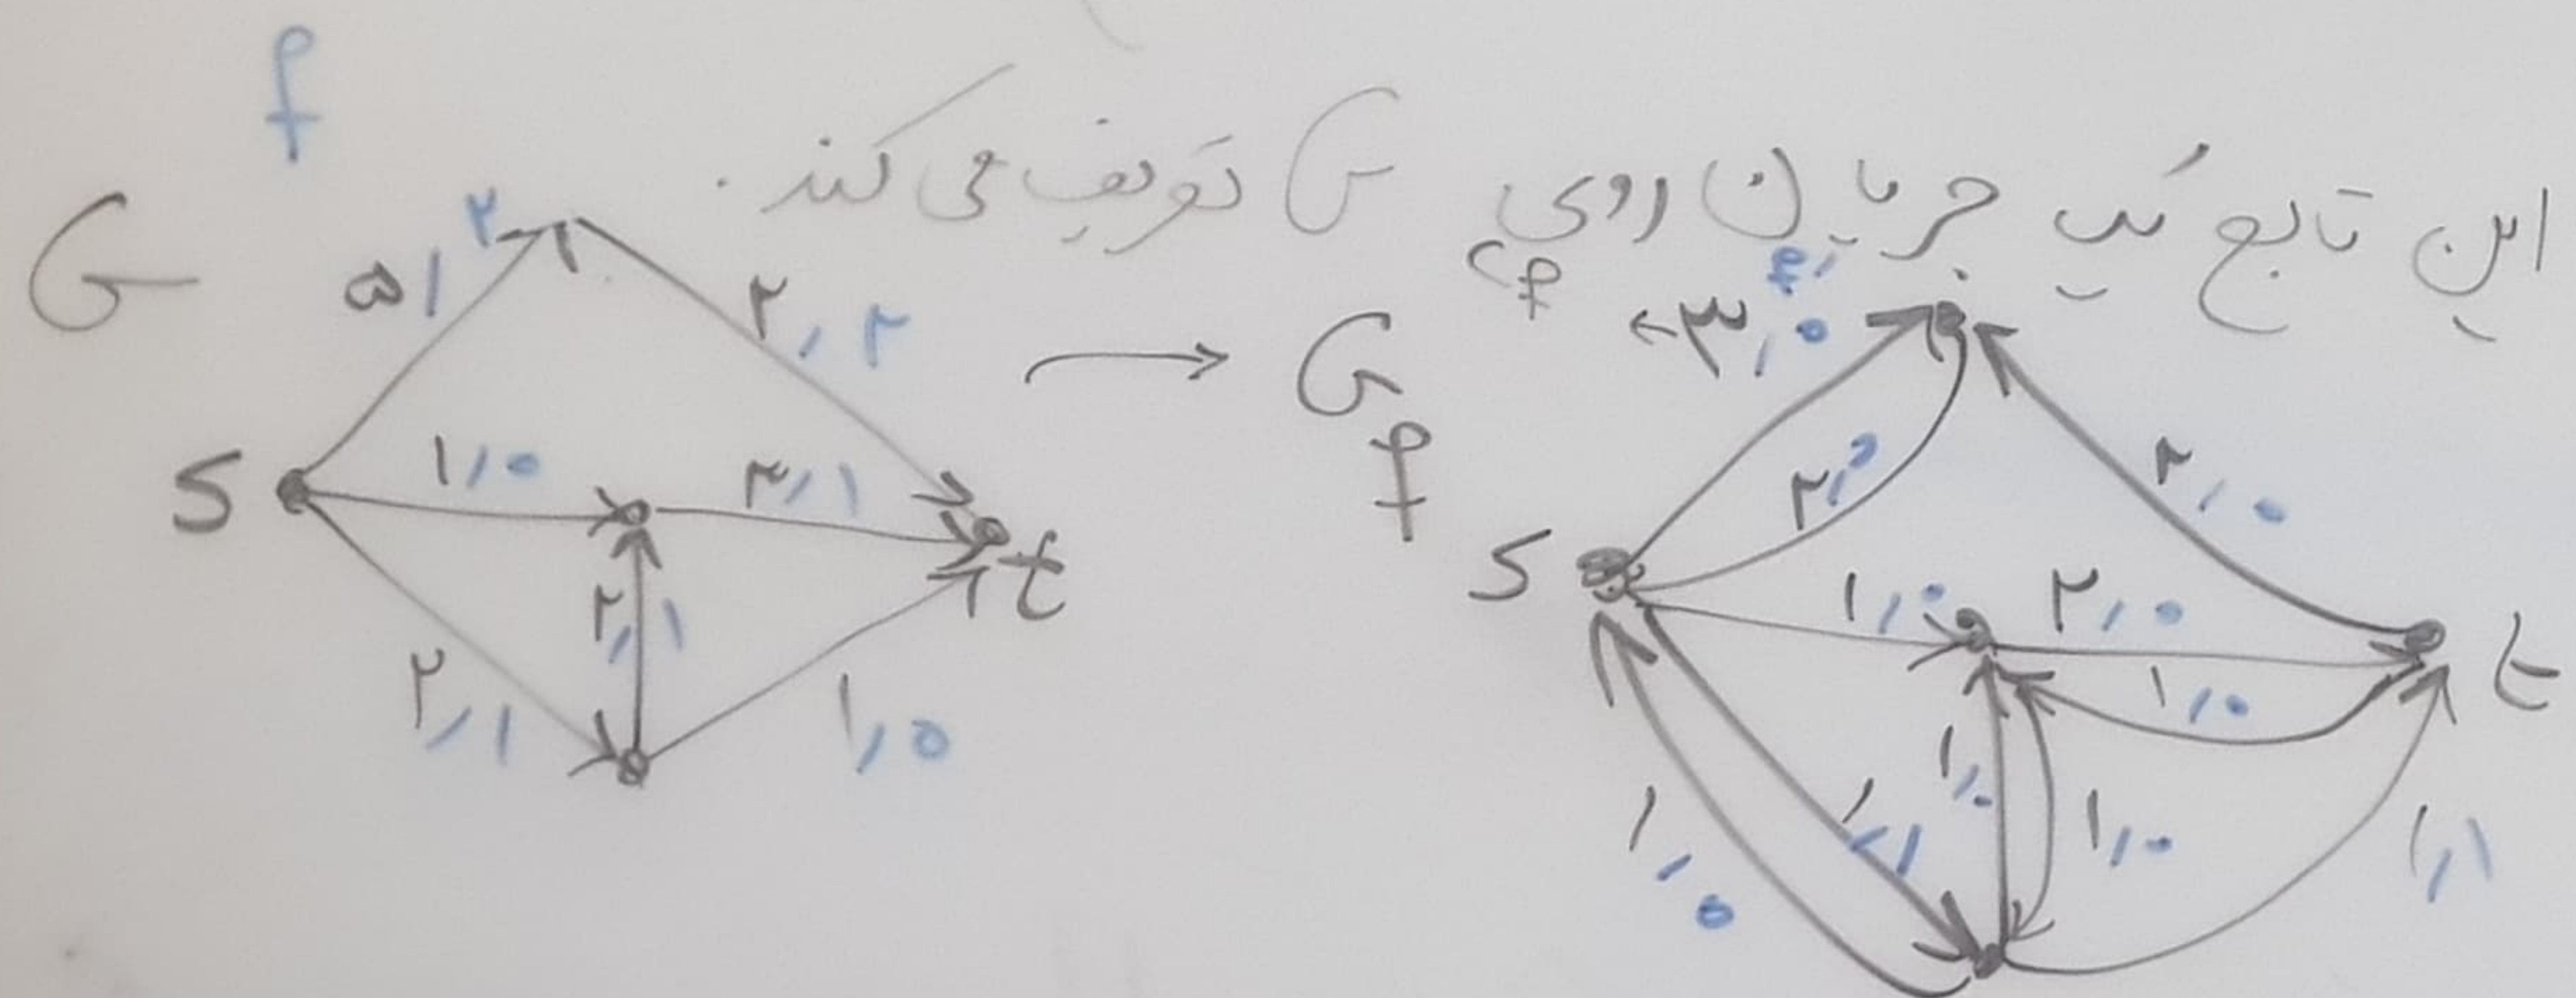 f
این تابع یک جریان روی G تعریف می‌کند.
G
۵/۲
۲,۲
S
۱,۰
۳/۱
t
۲,۱
۲,۱
۱,۰
→ G_f
c_f ← ۳,۰
f'
۲,۰
۲,۰
S
۱,۰
۲,۰
t
۱,۰
۱,۰
۱,۱
۱,۰
۱,۰
۱,۱